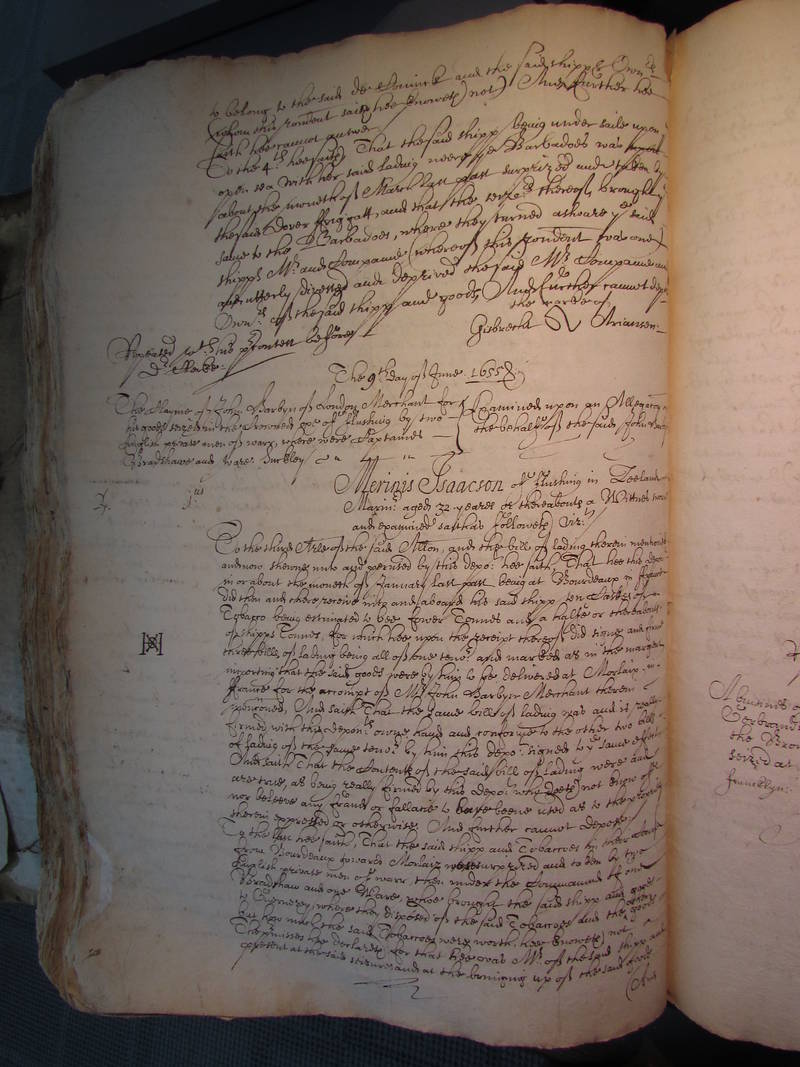 to belong to the said de Coninck and the said shipps Owners
(whom this rendent saith hee knoweth not) And further hee
saith hee cannot answer
To the 4th. hee saith That the said shipp being under saile upon
open sea with her said lading neere ye Barbadoes was
about the moneth of March last past surprized and taken by
the said Dover ffriggatt, and that the seizers thereof brought
same to the Barbadoes, where they turned ashoare ye said
shipps Mr. and Companie (whereof this rendent was one)
and utterly divested and deprived the said Mr. Companie and
Owners of the said shipp and goods And further cannot depose
the marke of
Gisbrecht Ariansen
Repeated wth. his precontest before
Dr. Clarke
The 9th day of June. 1655.
The Clayme of John Barbyn of London Merchant for
his goods seized in the of fflushing by two
English private men of warr, where were Captaines
Bradshawe and Ware. Suckley
Examined upon an Allegation
the behalfe of the said John
jus
Merinis Isaacson of fflushing in Zeeland
Marinr. aged 32 yeares or thereabouts a Wittnes sworne
and examined saith as followeth vizt.
To the third Arle of the said Allon, and the bill of lading therein mentioned
and now shewne unto and perused by this depot. hee saith That hee this depot
in or about the moneth of January last past being at Bourdeaux in ffrance
did then and there receive into and aboard his said shipp ten Caskes of
Tobacco being estimated to bee fower Tonnes and a halfe or thereabouts
of shipps Tonnes, for which hee upon the receipt thereof did signe and firme
three bills of lading being all of one tenor. and marked as in the margent
importing that the said goods were by him to be delivered at Morlaix in
ffrance for the accompt of Mr John Barbyn Merchant therein
mentioned, And saith That the same bill of lading was and is really
firmed with this deponts. owne hand and conforme to the other two bills
of lading of the same tenor. by him this depot. signed to ye same effect
And saith That the Contents of the said bill of lading were and
are true, as being really firmed by this depot. who doeth not know of
nor beleeve any fraud or fallacie to have beene used as to the
therein expressed or otherwise. And further cannot depose
To the last hee saith, That the said shipp and Tobaccoes in their course
from Bourdeaux towards Morlaix were surprized and taken by two
English private men of warr, then under the Command of one
Bradshaw and one Ware, whoe brought the said shipp and goods
to Guernezey, where they disposed of the said Tobaccoes and the other goods
but how much the said Tobaccoes were worth, hee knoweth not
The premisses hee declareth for that hee was Mr. of the said shipp and
present at the said seizure and at the bringing up of the said goods
(And
seized at